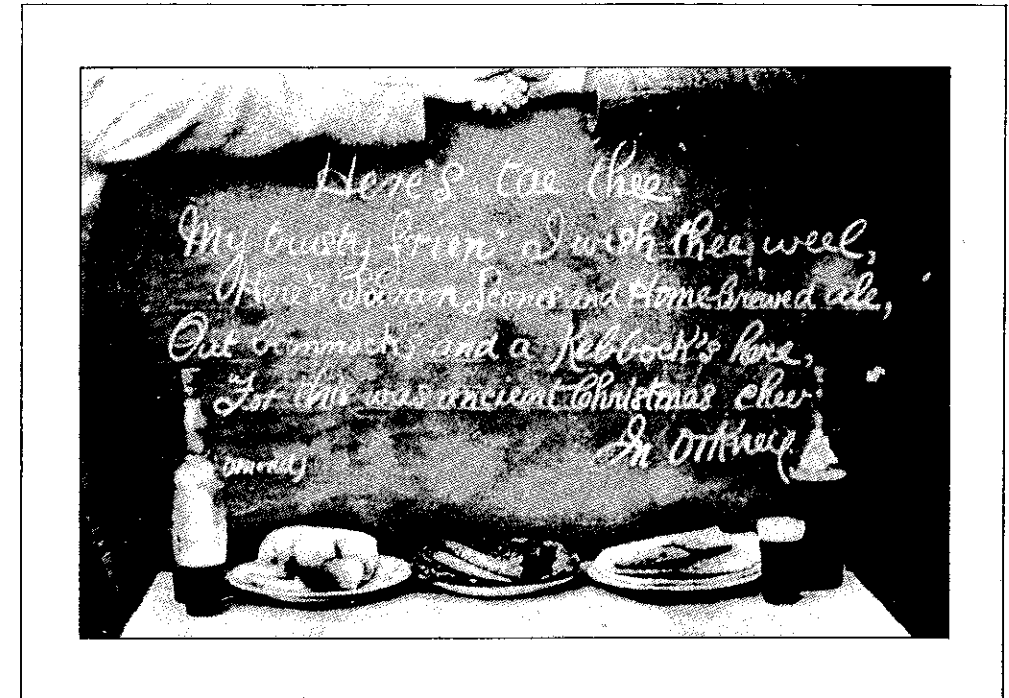 Here's tae thee
My trusty frien' I wish thee weel,
Here's Scones and Home brewed ale,
Oat bannocks and a Kebbock's here,
For this was ancient Christmas cheer
In Orkney